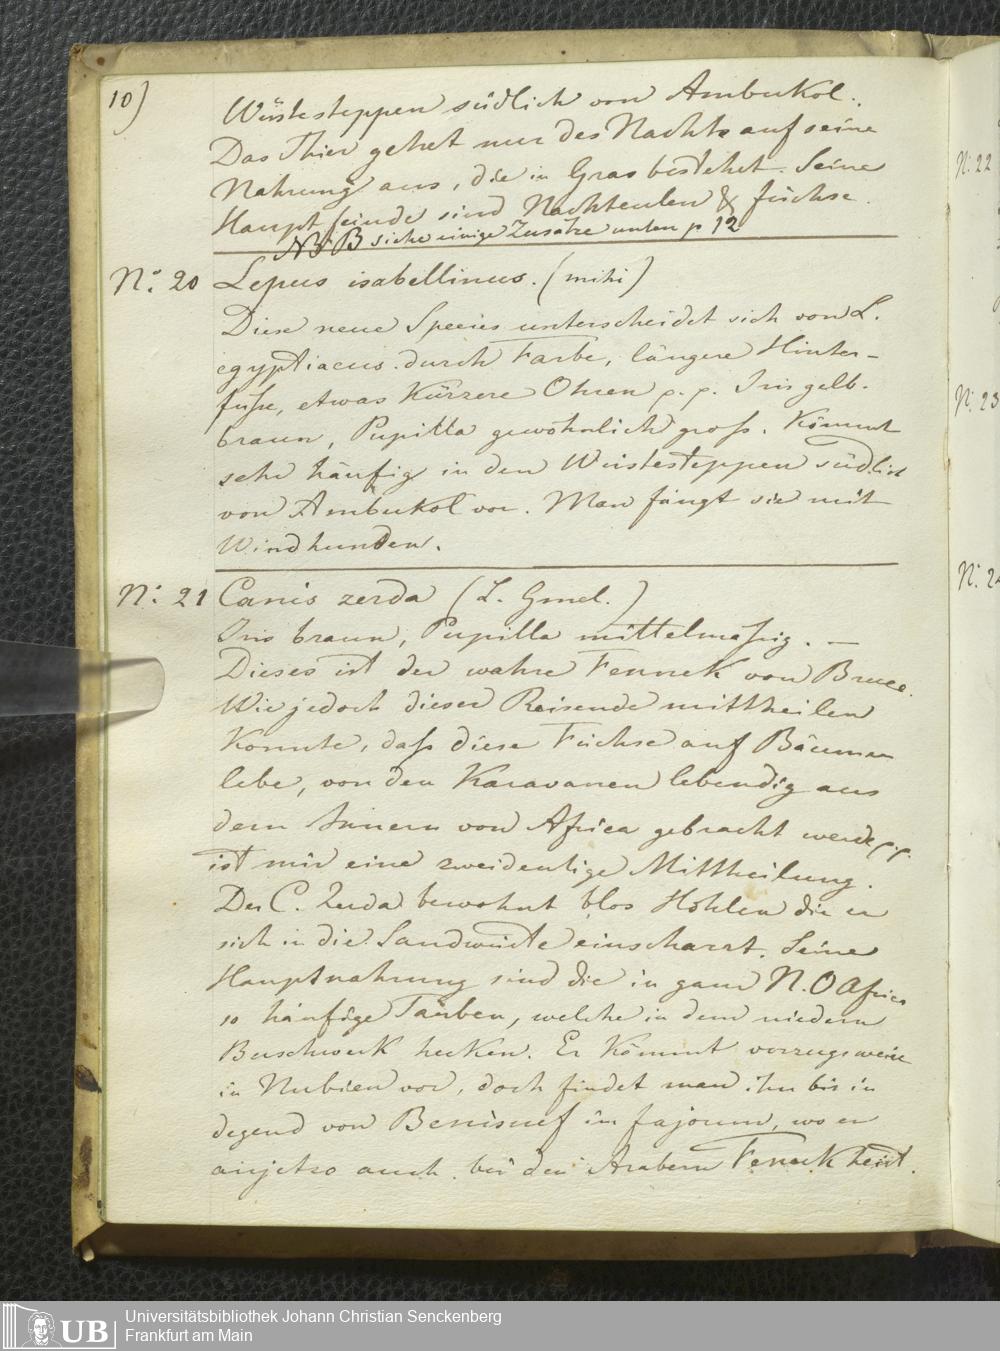 10)
Wüstesteppen südlich von Ambukol.
Das Thier gehet nur des Nachts auf seine
Nahrung aus, die in Gras bestehet. Seine
Haupt feinde sind Nachteulen & füchse.
NB siehe einige Zusätze unten p 12
N: 20 Lepus isabellinus. (mihi)
Diese neue Species unterscheidet sich von L.
egyptiacus durch Farbe, längere Hinter-
fuße, etwas Kürzere Ohren p. p. Iris gelb-
braun, Pupilla gewöhnlich groß. Kömmt
sehr häufig in den Wüstesteppen südlich
von Ambukol vor. Man fängt sie mit
Windhunden.
N: 21 Canis zerda (L. Gmel.)
Iris braun, Pupilla mittelmäßig. —
Dieses ist der wahre Fennek von Bruce.
Wie jedoch dieser Reisende mittheilen
Konnte, daß diese Füchse auf Bäumen
lebe, von den Karavanen lebendig aus
dem Innern von Africa gebracht werde p.p.
ist mir eine zweideutige Mittheilung.
Der C. Zerda bewohnt blos Höhlen die er
sich in die Sandwüste einscharrt. Seine
Hauptnahrung sind die in ganz N. O Africa
so häufige Tauben, welche in dem niedern
Buschwerk hecken. Er Kömmt vorzugsweise
in Nubien vor, doch findet man ihn bis in
degend von Benisuef im fajoum, wo er
anjetzo auch bei den Arabern Fennek heist.
N: 22
N: 23
N: 24
Universitätsbibliothek Johann Christian Senckenberg
Frankfurt am Main
UB